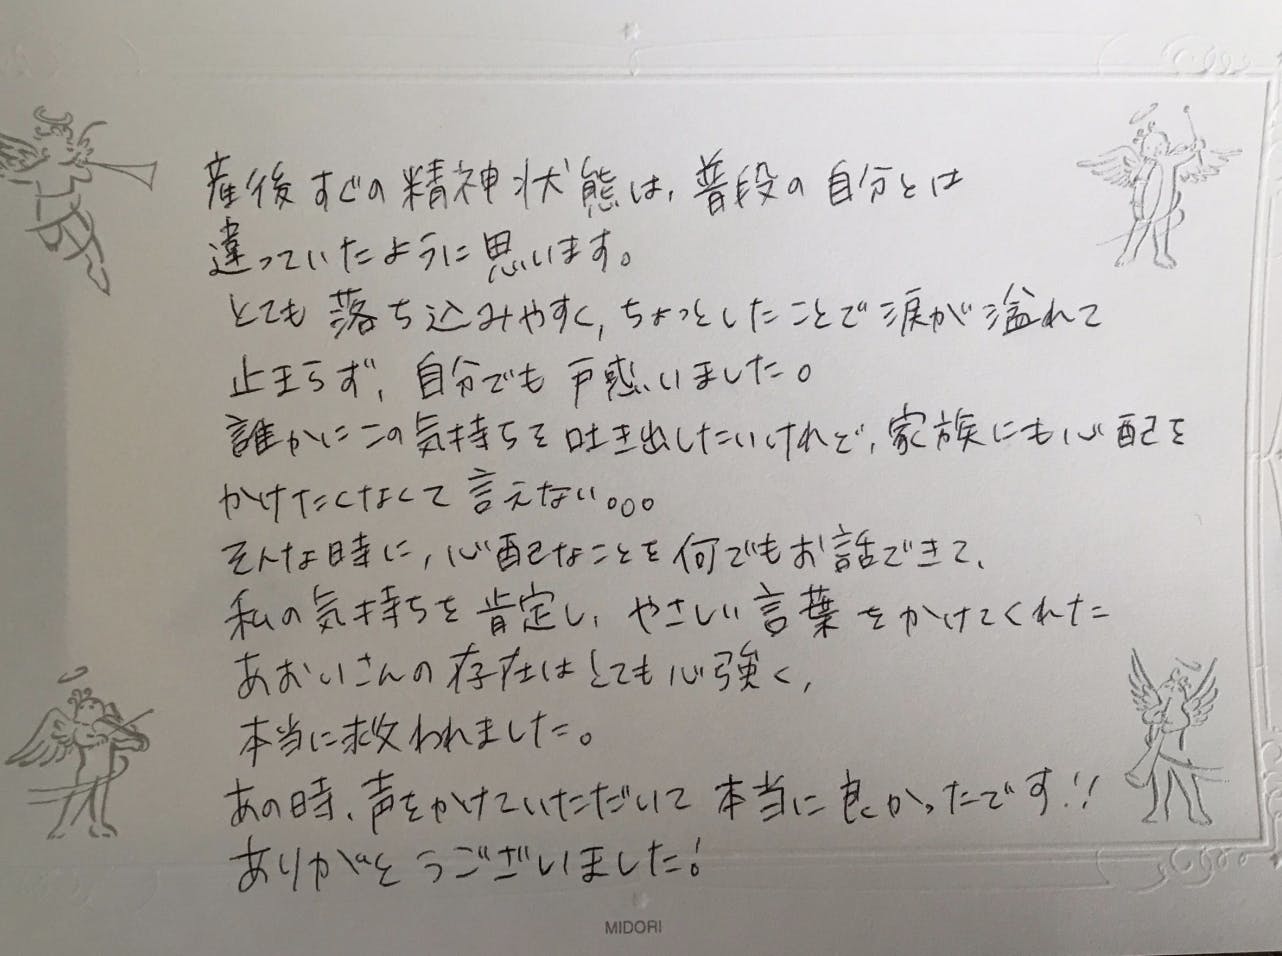 産後すぐの精神状態は、普段の自分とは
違っていたように思います。
とても落ち込みやすく、ちょっとしたことで涙が溢れて
止まらず、自分でも戸惑いました。
誰かにこの気持ちを吐き出したいけれど、家族にも心配を
かけたくなくて言えない。。。
そんな時に、心配なことを何でもお話できて、
私の気持ちを肯定し、やさしい言葉をかけてくれた
あおいさんの存在はとても心強く、
本当に救われました。
あの時、声をかけていただいて本当に良かったです!!
ありがとうございました!
MIDORI